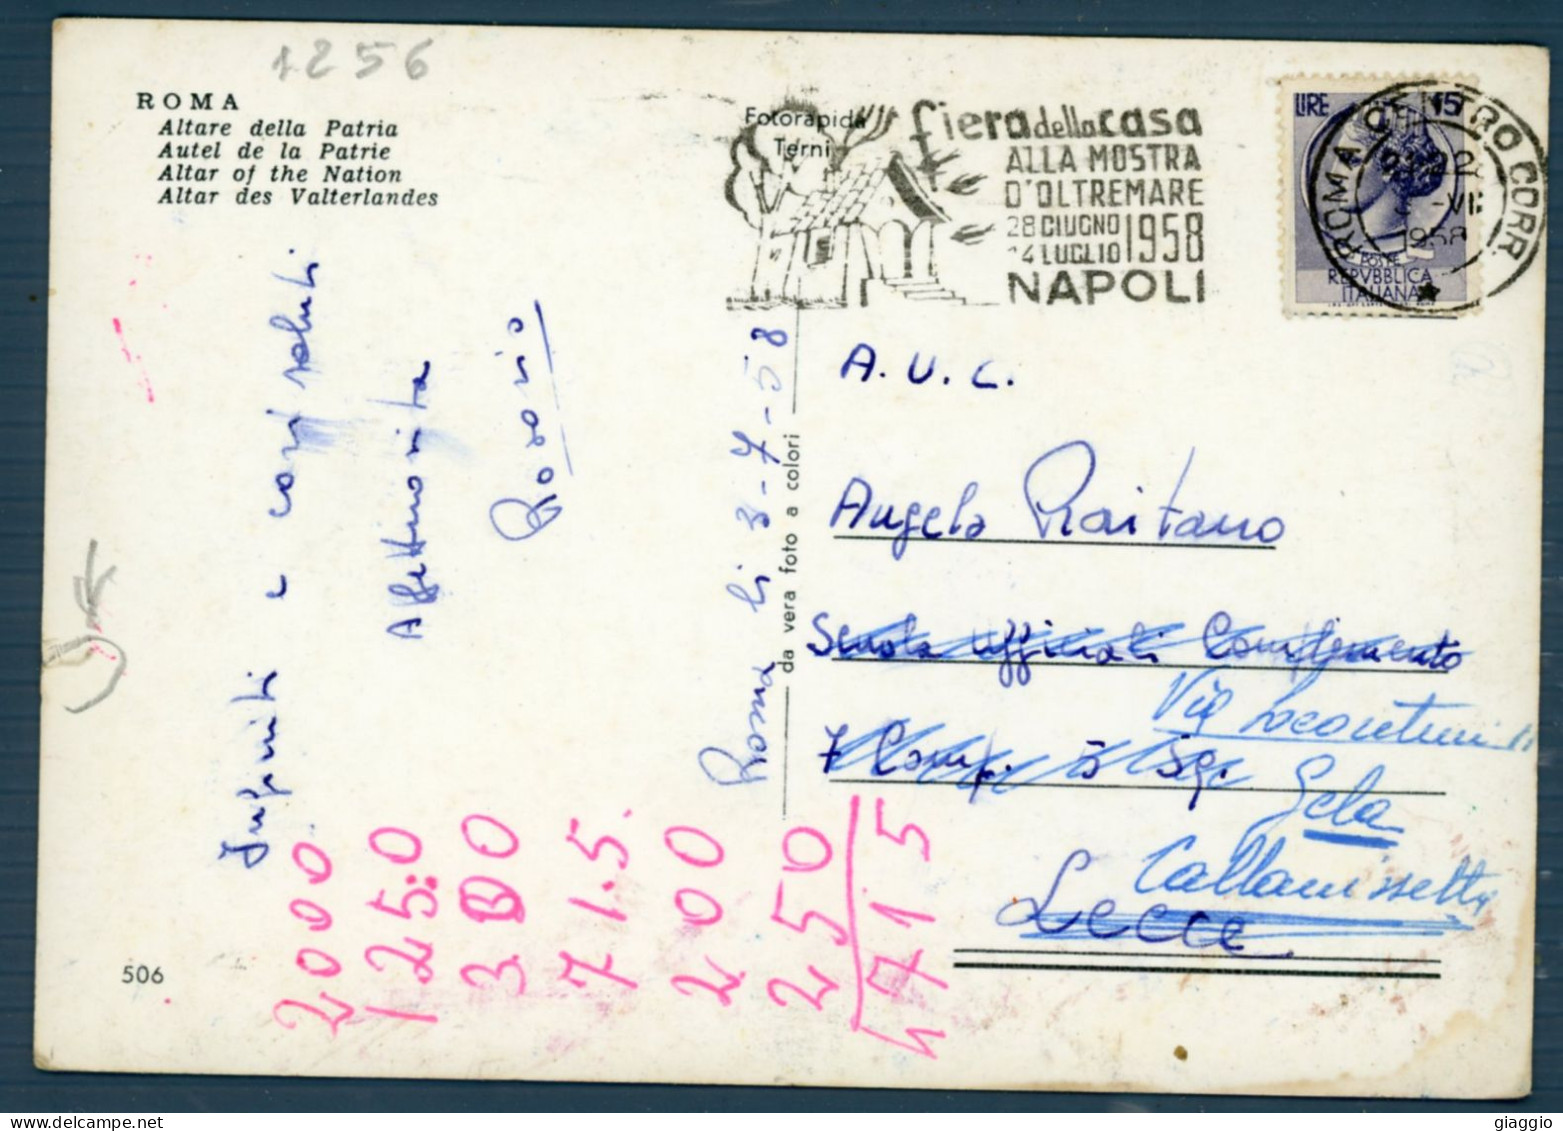 1256
ROMA
Altare della Patria
Autel de la Patrie
Altar of the Nation
Altar des Valterlandes
Fotorapida
Terni
fiera della casa
ALLA MOSTRA
D'OLTREMARE
28 GIUGNO
14 LUGLIO 1958
NAPOLI
LIRE 15
POSTE
REPVBBLICA
ITALIANA
ROMA CENTRO CORR
-VII
1958
Infiniti e cari saluti
Affettuosità
Rosario
Roma li 3-7-58
da vera foto a colori
A. U. C.
Angelo Raitano
Scuola Ufficiali Complemento
Via
7 Comp. 5 Sq.
Gela
Caltanissetta
Lecce
2000
1250
300
715
200
250
4715
506
giaggio
©delcampe.net